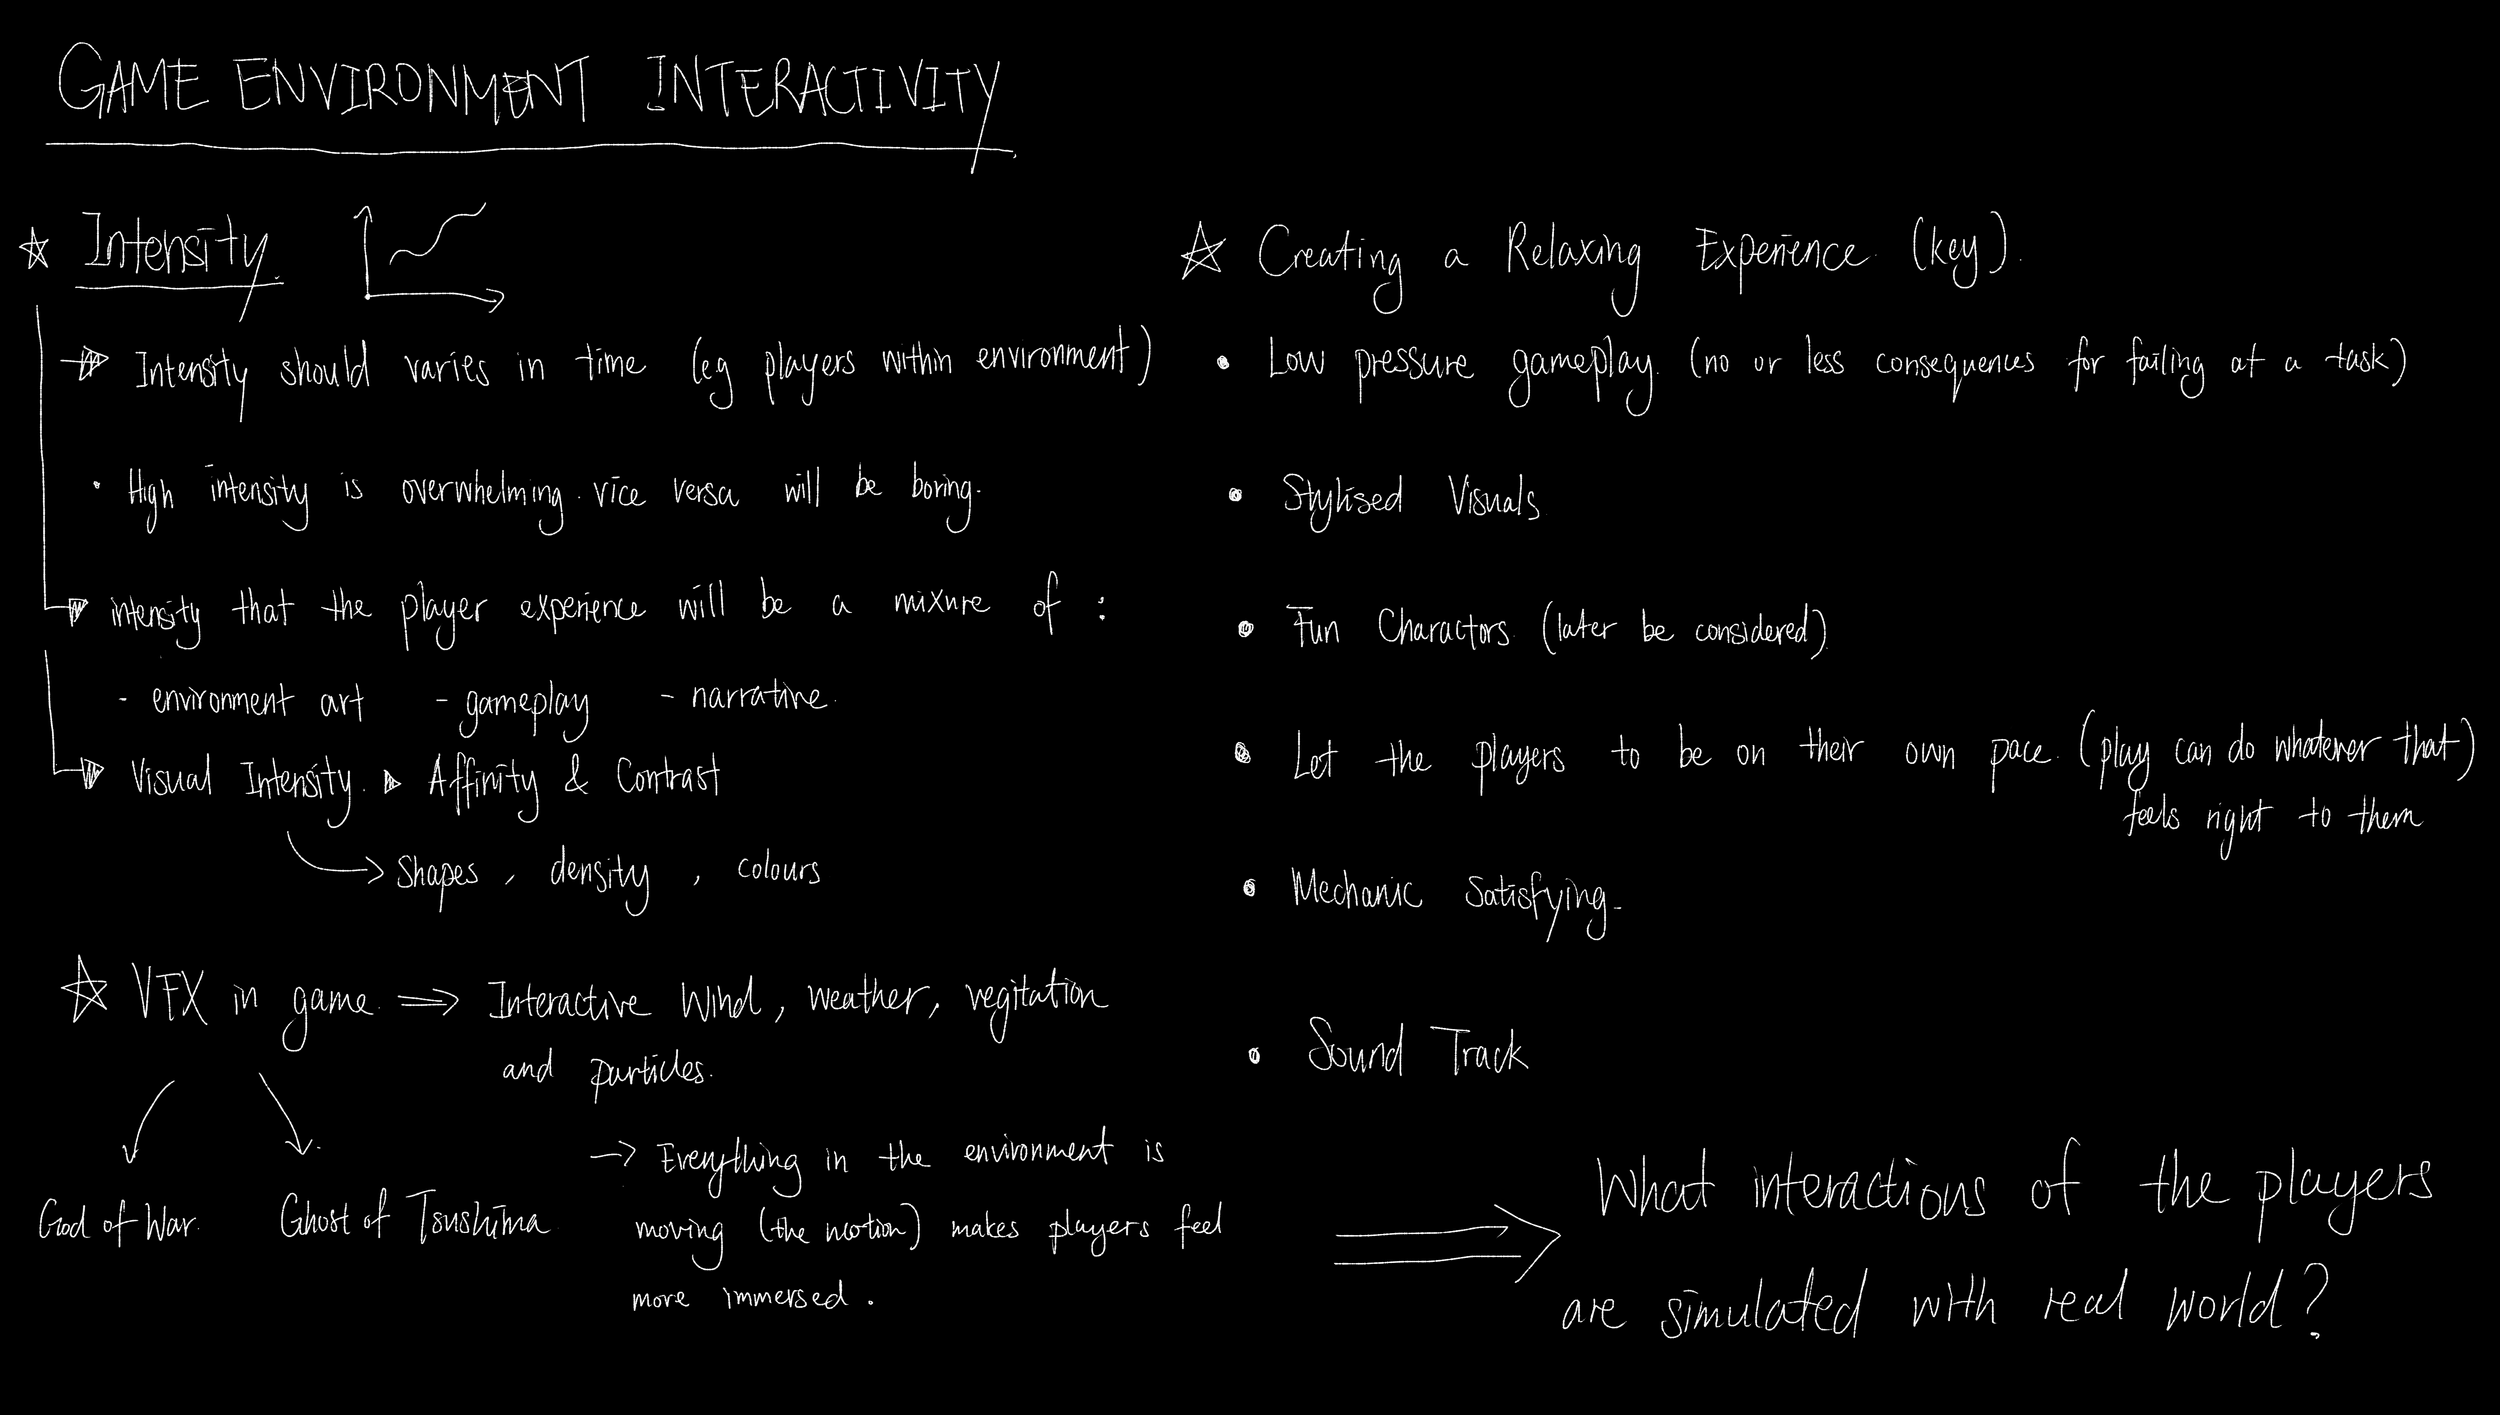 GAME ENVIRONMENT INTERACTIVITY
Intensity
Intensity should varies in time (eg players within environment)
High intensity is overwhelming. vice versa will be boring.
intensity that the player experience will be a mixure of :
- environment art - gameplay - narrative.
Visual Intensity. Affinity & Contrast
Shapes, density, colours
VFX in game. Interactive Wind, weather, vegitation
and particles.
God of War. Ghost of Tsushima
Everything in the environment is
moving (the motion) makes players feel
more immersed.
Creating a Relaxing Experience. (key).
Low pressure gameplay. (no or less consequences for failing at a task)
Stylised Visuals
Fun Charactors. (later be considered)
Let the players to be on their own pace. (play can do whatever that)
feels right to them
Mechanic Satisfying.
Sound Track
What interactions of the players
are simulated with real world?